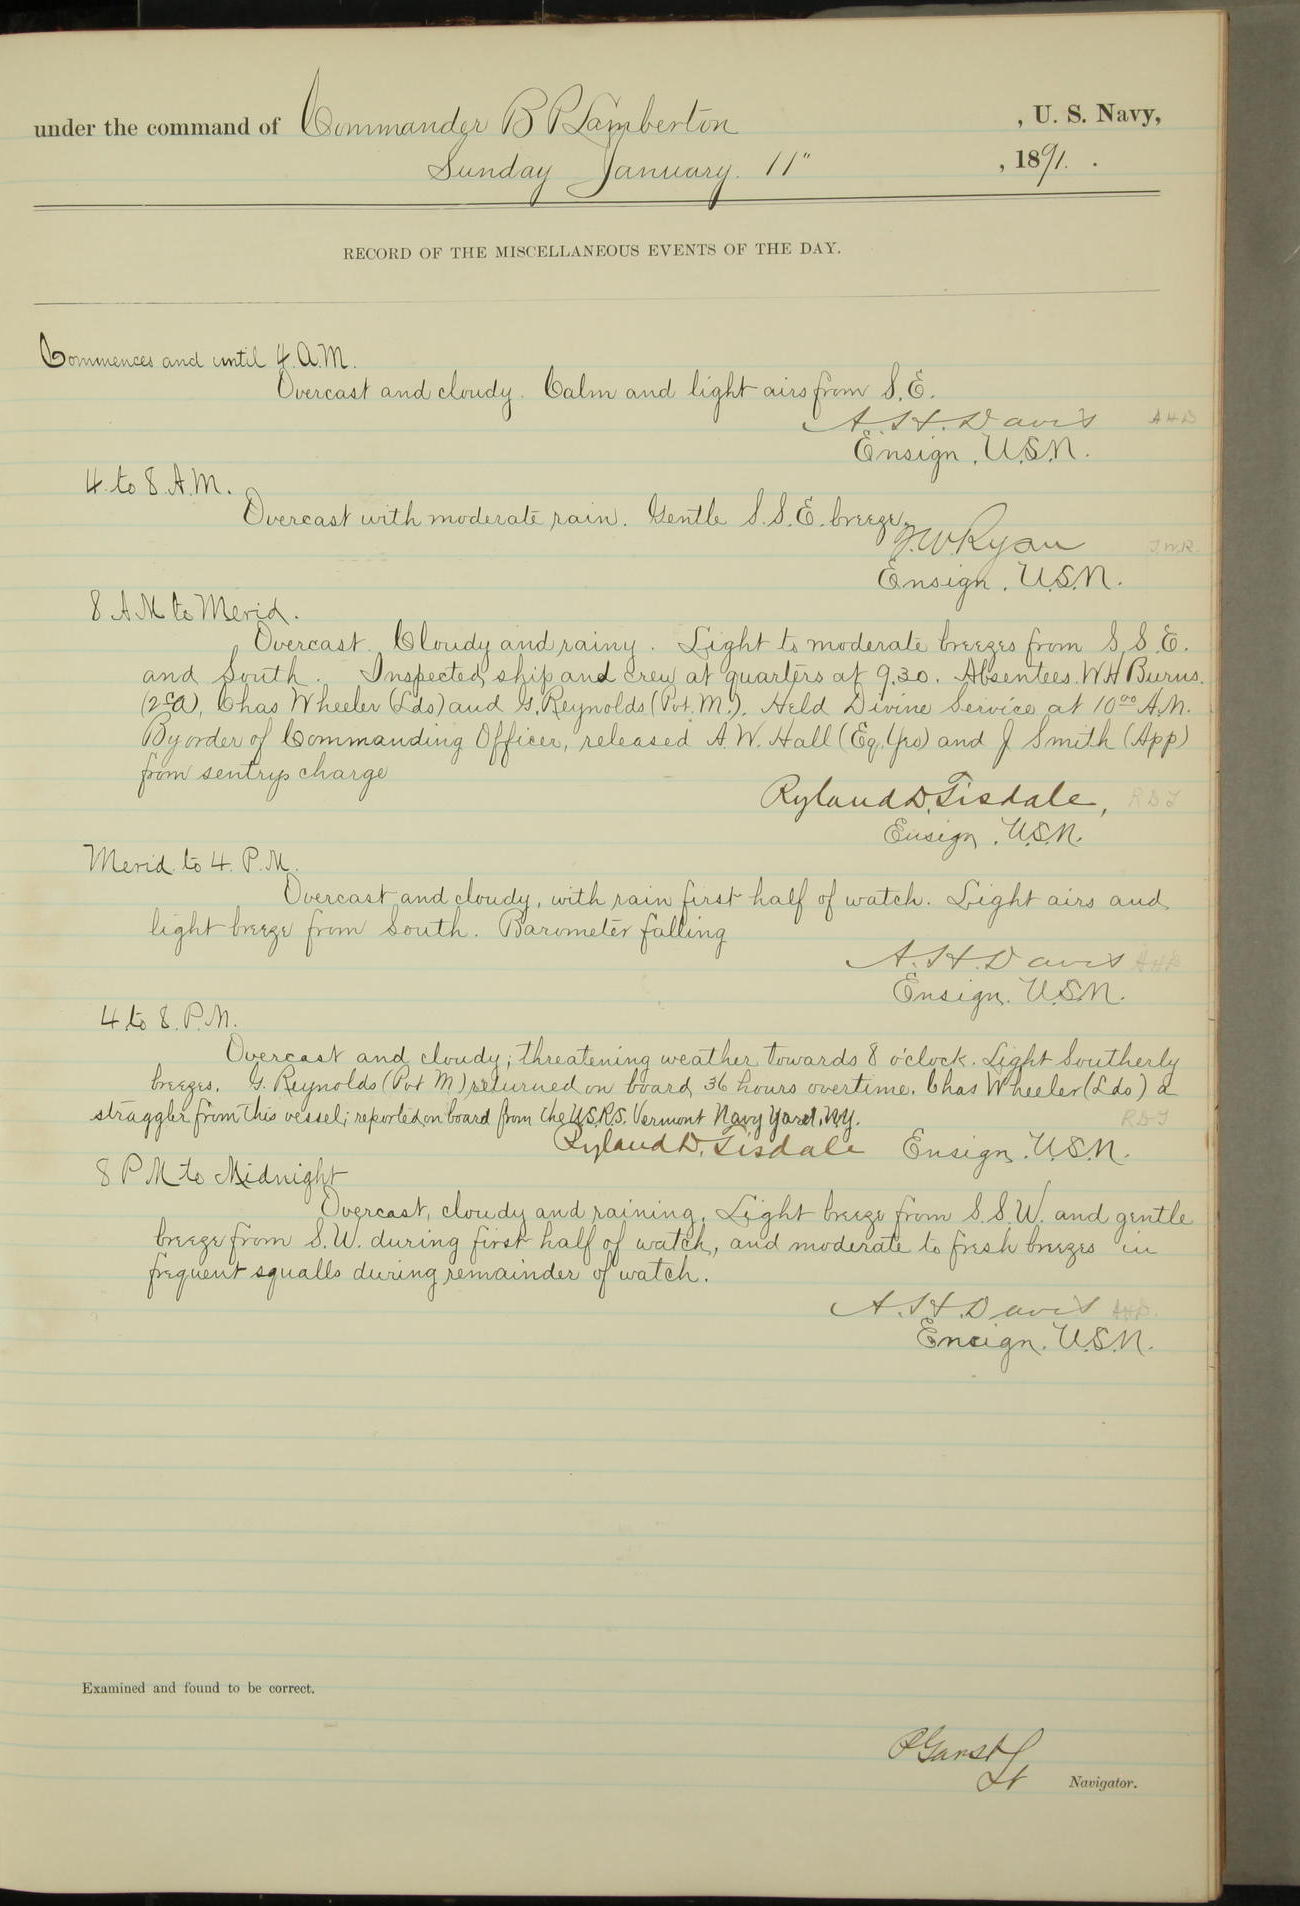 under the command of Commander B P Lamberton , U. S. Navy,
Sunday January. 11" , 1891. .
RECORD OF THE MISCELLANEOUS EVENTS OF THE DAY.
Commences and until 4. A.M.
Overcast and cloudy. Calm and light airs from S.E.
A. H. Davis A H D
Ensign. U.S.N.
4 to 8 A.M.
Overcast with moderate rain. Gentle S.S.E. breeze.
J. W. Ryan J.W.R.
Ensign. U.S.N.
8 A M to Merid.
Overcast. Cloudy and rainy. Light to moderate breezes from S S.E.
and South. Inspected ship and crew at quarters at 9.30. Absentees. W H Burns.
Chas Wheeler (Lds) and G. Reynolds (Pvt. M.). Held Divine Service at 10⁰⁰ A.M.
By order of Commanding Officer, released A. W. Hall (Eq. Yeo) and J Smith (App)
from sentrys charge
Ryland D. Tisdale, R D T
Ensign. U.S.N.
Merid to 4. P.M.
Overcast and cloudy, with rain first half of watch. Light airs and
light breeze from South. Barometer falling
A. H. Davis A H D
Ensign. U.S.N.
4 to 8. P.M.
Overcast and cloudy; threatening weather towards 8 o'clock. Light Southerly
breezes. G. Reynolds (Pvt M) returned on board 36 hours overtime. Chas Wheeler (Lds) a
straggler from this vessel; reported on board from the U.S.R.S. Vermont Navy Yard. N.Y.
R D T
Ryland D. Tisdale Ensign. U.S.N.
8 P M to Midnight
Overcast, cloudy and raining. Light breeze from S.S.W. and gentle
breeze from S.W. during first half of watch, and moderate to fresh breezes in
frequent squalls during remainder of watch.
A. H. Davis A.H.D.
Ensign. U.S.N.
Examined and found to be correct.
P Garst
Lt Navigator.